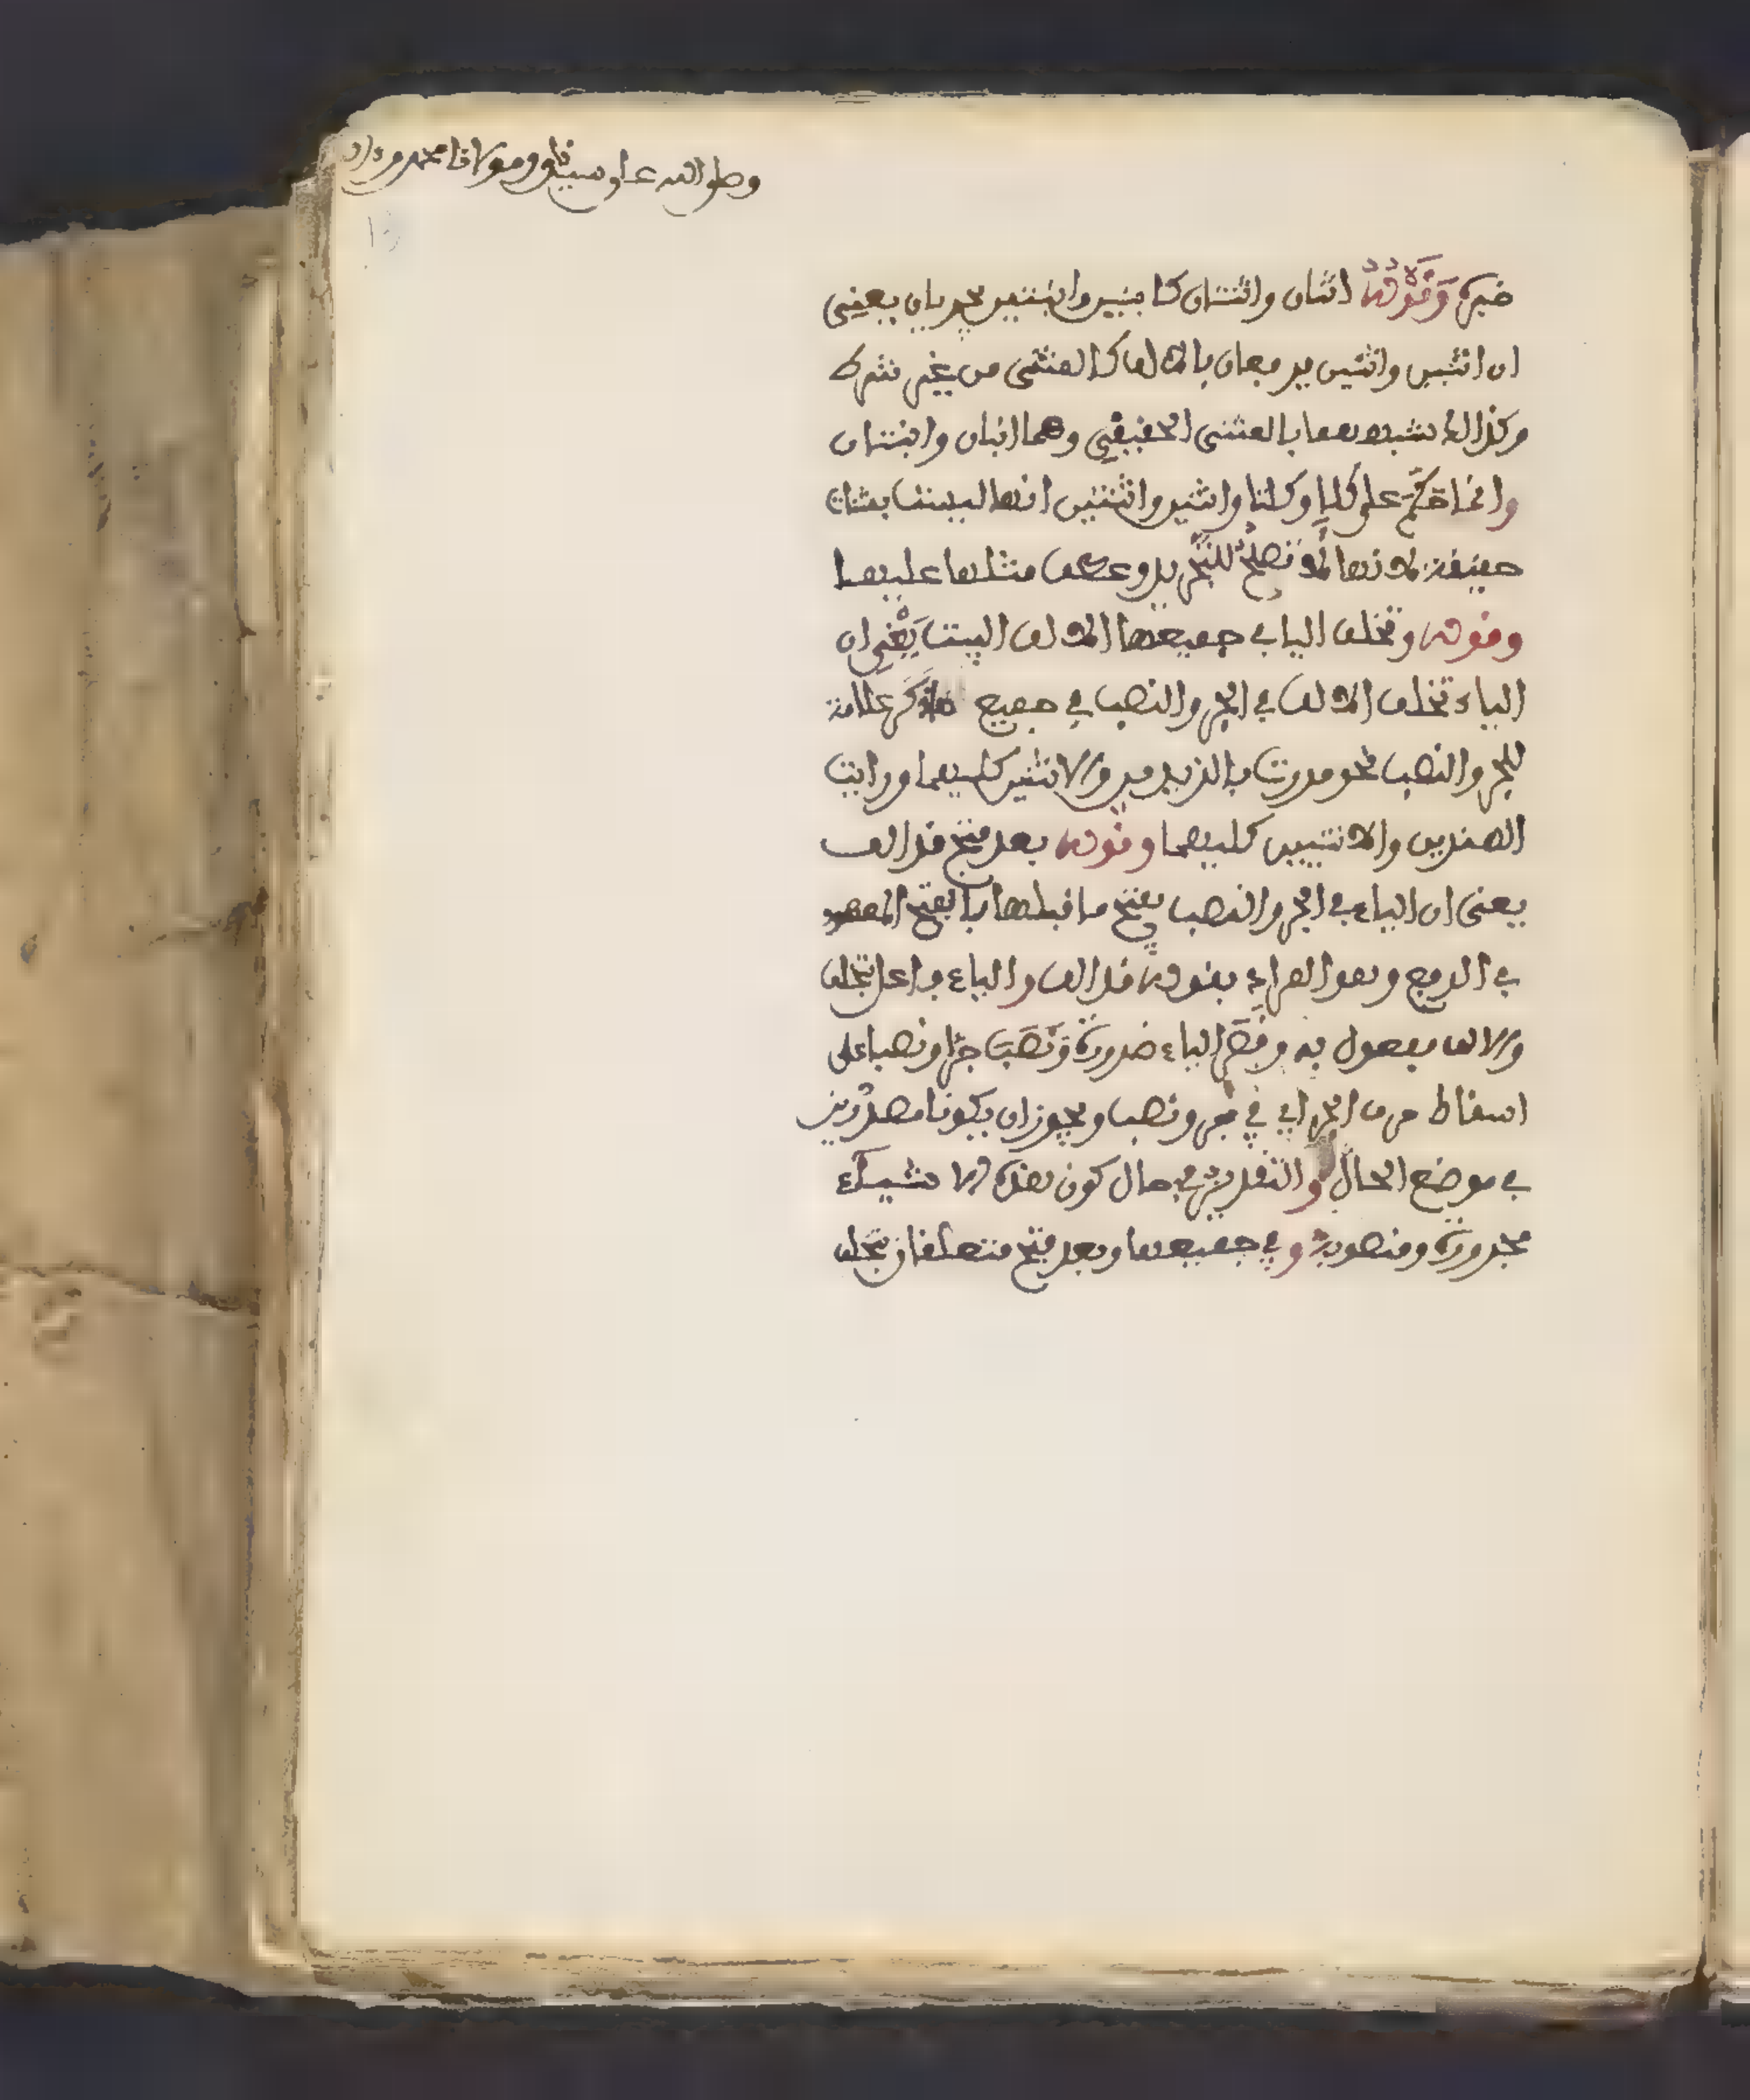 وصلى الله على سيدنا ومولانا محمد وءاله
خبره وَقَوْلُهُ اثنان واثنتان كابنين وابنتين يجريان يعني
ان اثنين واثنتين يرفعان بالالف كالمثنى من غير شرط
وكذالك شبههما بالمثنى الحقيقي وهما ابنان وابنتان
وانما حكم على كلا وكلتا واثنين واثنتين انها ليست بمثناة
حقيقة لانها لا تصلح للتجريد وعطف مثلها عليها
وقوله وتخلف اليا في جميعها الالف البيت يَعْنِي ان
الياء تخلف الالف في الجر والنصب في جميع ما ذكر علامة
للجر والنصب نحو مررت بالزيدين والاثنين كليهما ورايت
الهندين والاثنتين كلتيهما وقوله بعد فتح قد الف
يعنى ان الياء في الجر والنصب يفتح ما قبلها بالفتح المعهود
في الرفع وهو المراد بقوله قد الف والياء فاعل تخلف
والالف مفعول به وقَصَرَ الياء ضرورة وَنَصَبَ جرا ونصبا على
اسقاط حرف الجر اي في جر ونصب ويجوز ان يكونا مصدرين
في موضع الحال والتقدير في حال كون هذه الاشياء
مجرورة ومنصوبة وفي جميعها وبعد فتح متعلقان بتخلف